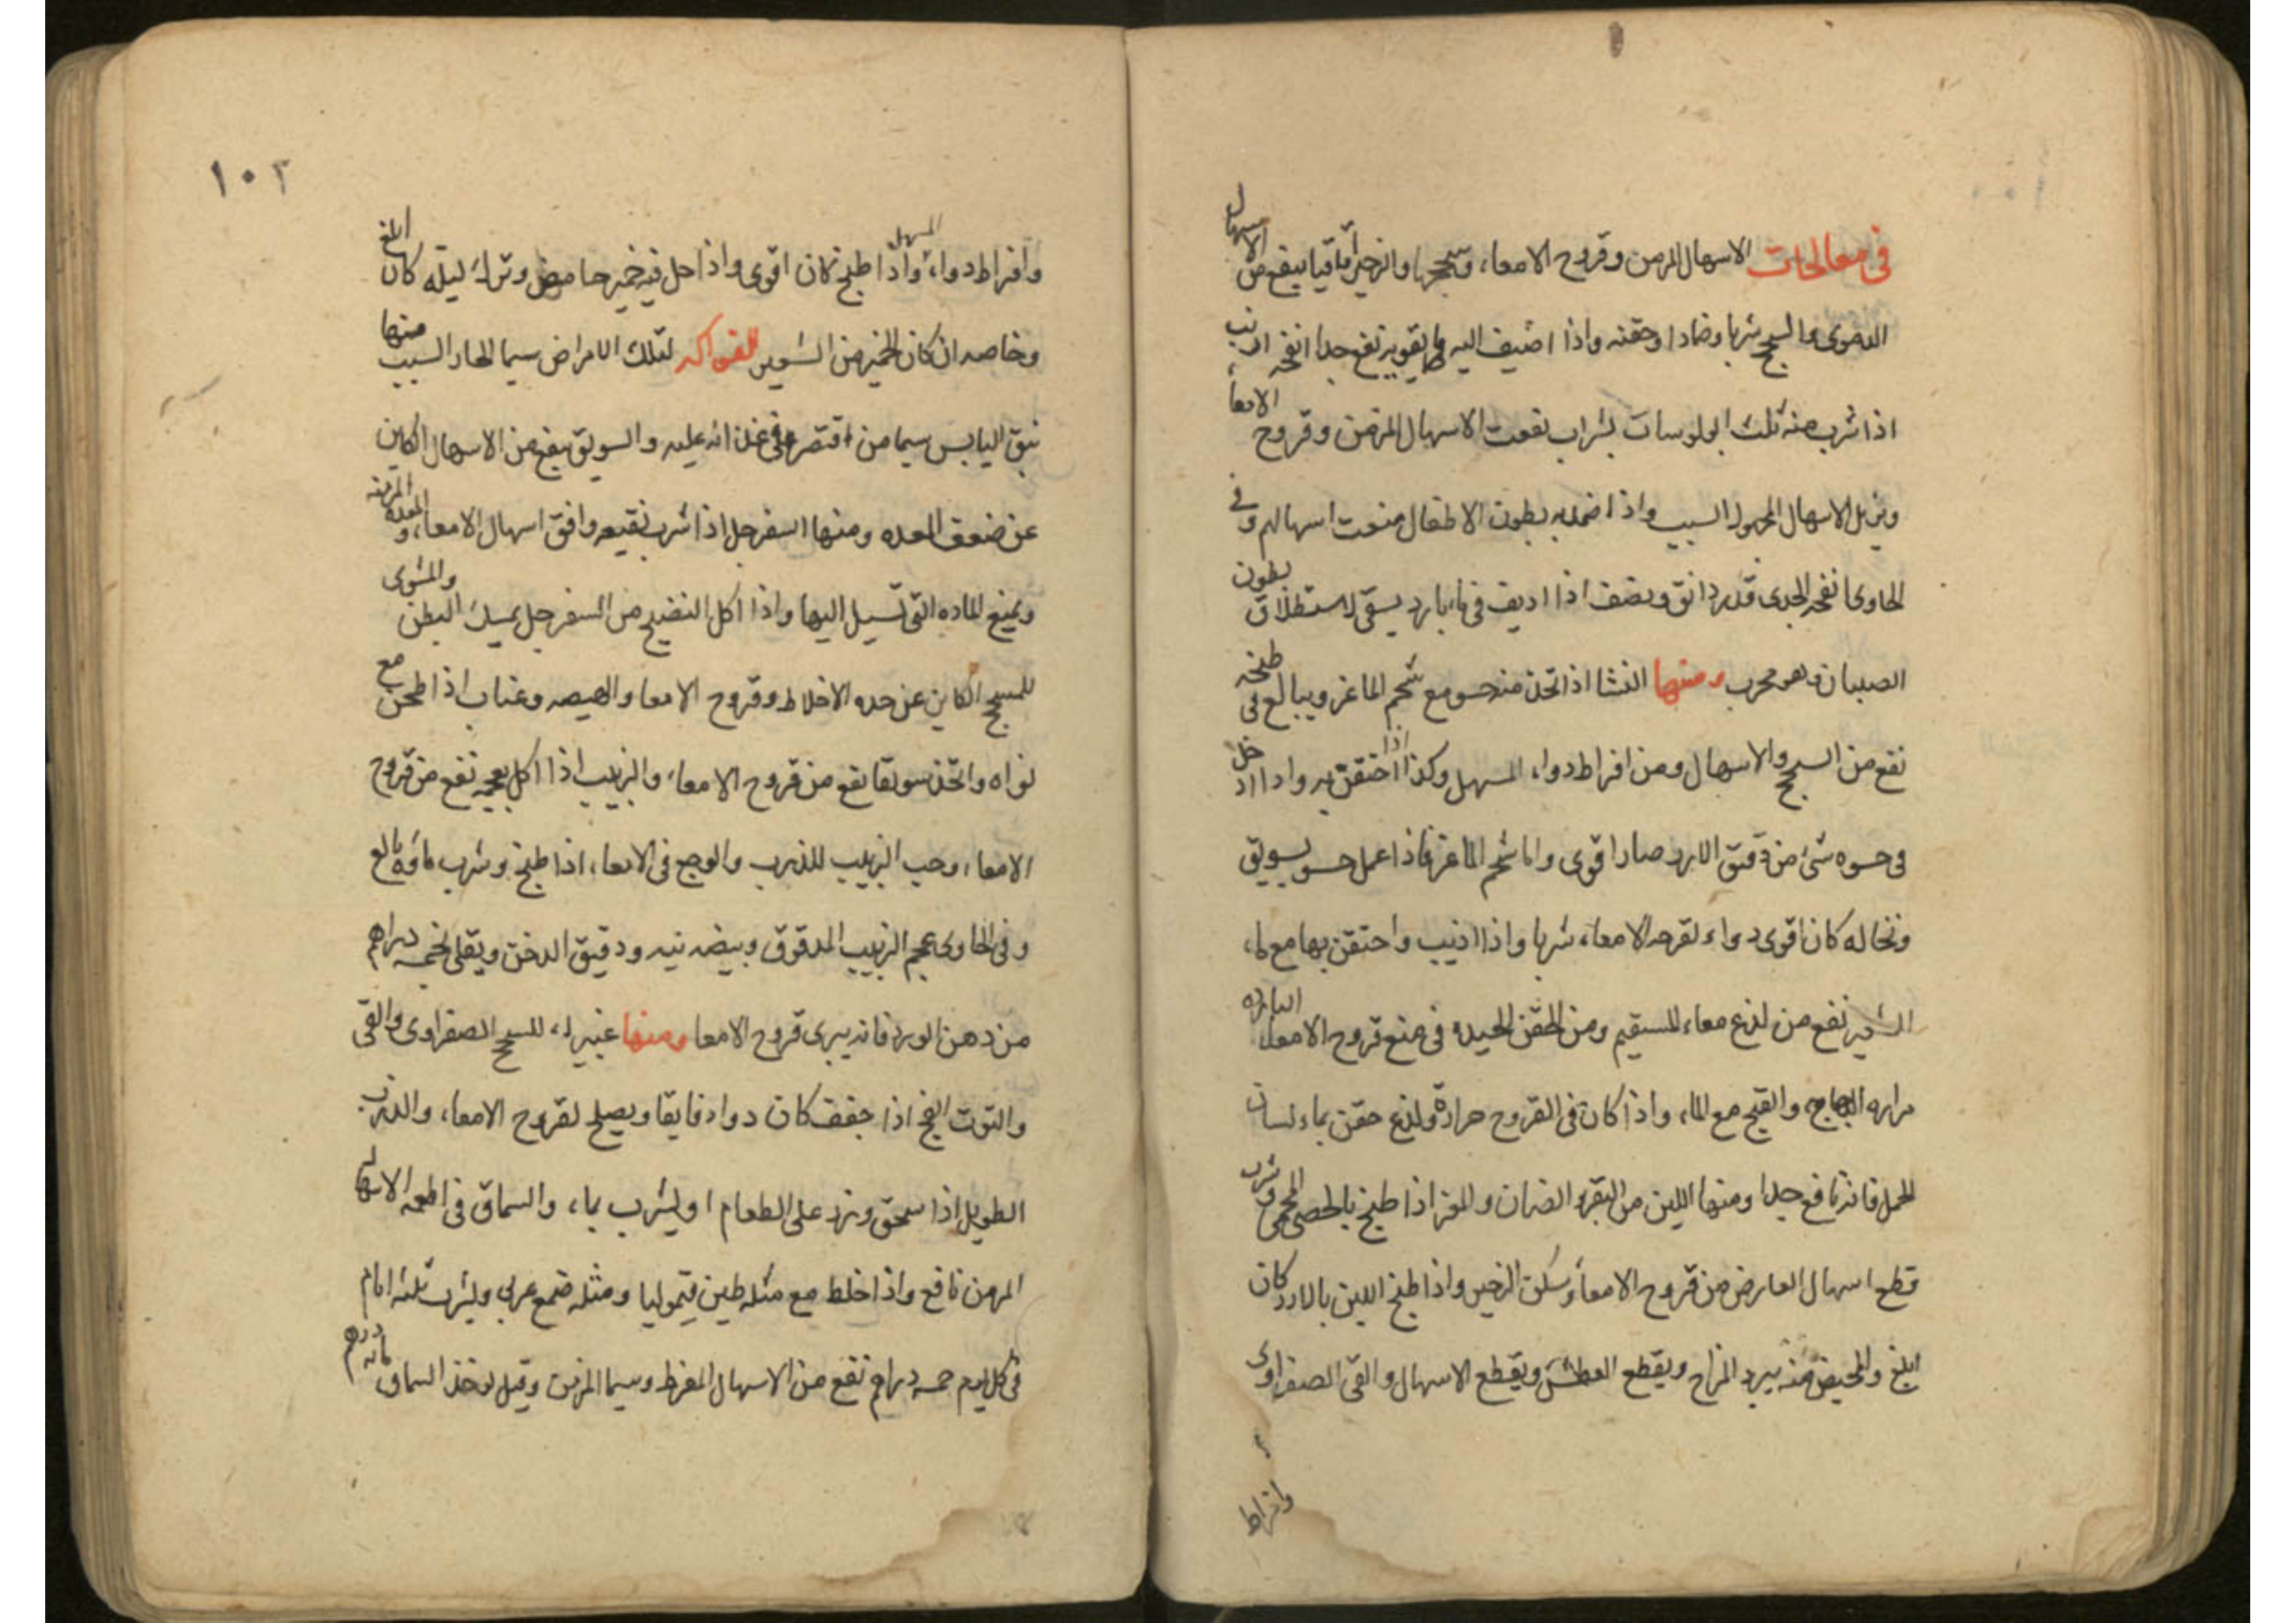 في معالجات الاسهال المزمن وقروح الامعاء وسحجها والزحير اقاقيا ينفع من الاسهال
الدموى والسحج شربا وضمادا وحقنه واذا اضيف اليه ما يقويه نفع جدا انفحه ارنب
اذا شرب منه ثلث ابولوسات بشراب نفعت الاسهال المزمن وقروح الامعاء
ويزيل الاسهال المجهول السبب واذا ضمد به بطون الاطفال منعت اسهالهم وفى
الحاوى انفحه الجدى قدر دانق ونصف اذا اديف فى ماء بارد يسقى لاستطلاق بطون
الصبيان وهو مجرب ومنها النشا اذا اتخذ منه حسو مع شحم الماعز ويبالغ فى طبخه
نفع من السحج والاسهال ومن افراط دواء المسهل وكذا اذا احتقن به واذا ادخل
فى حسوه شئ من دقيق الارز صار اقوى واما شحم الماعز فاذا عمل حسو بسويق
ونخاله كان اقوى دواء لقرحه الامعاء شربا واذا اذيب واحتقن بها مع ماء
الشعير نفع من لذع معاء المستقيم ومن الحقن الجيده فى منع قروح الامعاء البارده
مراره الدجاج والقيح مع الماء واذا كان فى القروح حرارة ولذع حقن بماء لسان
الحمل فانه نافع جدا ومنها اللبن من البقر والضان والمعز اذا طبخ بالحصى المحمى وشرب
قطع اسهال العارض من قروح الامعاء وسكن الزحير واذا طبخ اللبن بالارز كان
ابلغ والمخيض منه يبرد المزاج ويقطع العطش ويقطع الاسهال والقئ الصفراوى
وافراط
١٠٢
وافراط دواء المسهل واذا طبخ كان اقوى واذا حل فيه خمير حامض وترك ليله كان ابلغ
وخاصه ان كان الخمير من الشعير الفواكه لتلك الامراض سيما الحار السبب منها
نبق اليابس سيما من اقتصر فى غذائه عليه والسويق ينفع من الاسهال الكاين
عن ضعف المعده ومنها السفرجل اذا شرب نقيعه وافق اسهال الامعاء والمعده المزمنه
ويمنع الماده التى تسيل اليها واذا اكل النضيج من السفرجل يمسك البطن والمشوى
للسحج الكاين عن حده الاخلاط وقروح الامعا والهيضه وعناب اذا طحن مع
نواه واتخذ سويقا نفع من قروح الامعاء والزبيب اذا اكل بعجمه نفع من قروح
الامعاء وحب الزبيب للذرب والوجع فى الامعاء اذا طبخ وشرب ماؤه بالغ
وفى الحاوى عجم الزبيب المدقوق وبيضه نيه ودقيق الدخن ويقلى بخمسه دراهم
من دهن الورد فانه يبرى قروح الامعا ومنها غبيراء للسحج الصفراوى والقى
والتوت الفج اذا جفف كان دواء فايقا ويصلح لقروح الامعاء والذرب
الطويل اذا سحق وذرد على الطعام او ليشرب بماء والسماق فى اطعمه الاسهال
المزمن نافع واذا خلط مع مثله طين قيموليا ومثله صمغ عربى وليشرب ثلثه ايام
فى كل يوم خمسه دراهم نفع من الاسهال المفرط وسيما المزمن وقيل يوخذ السماق مائه درهم